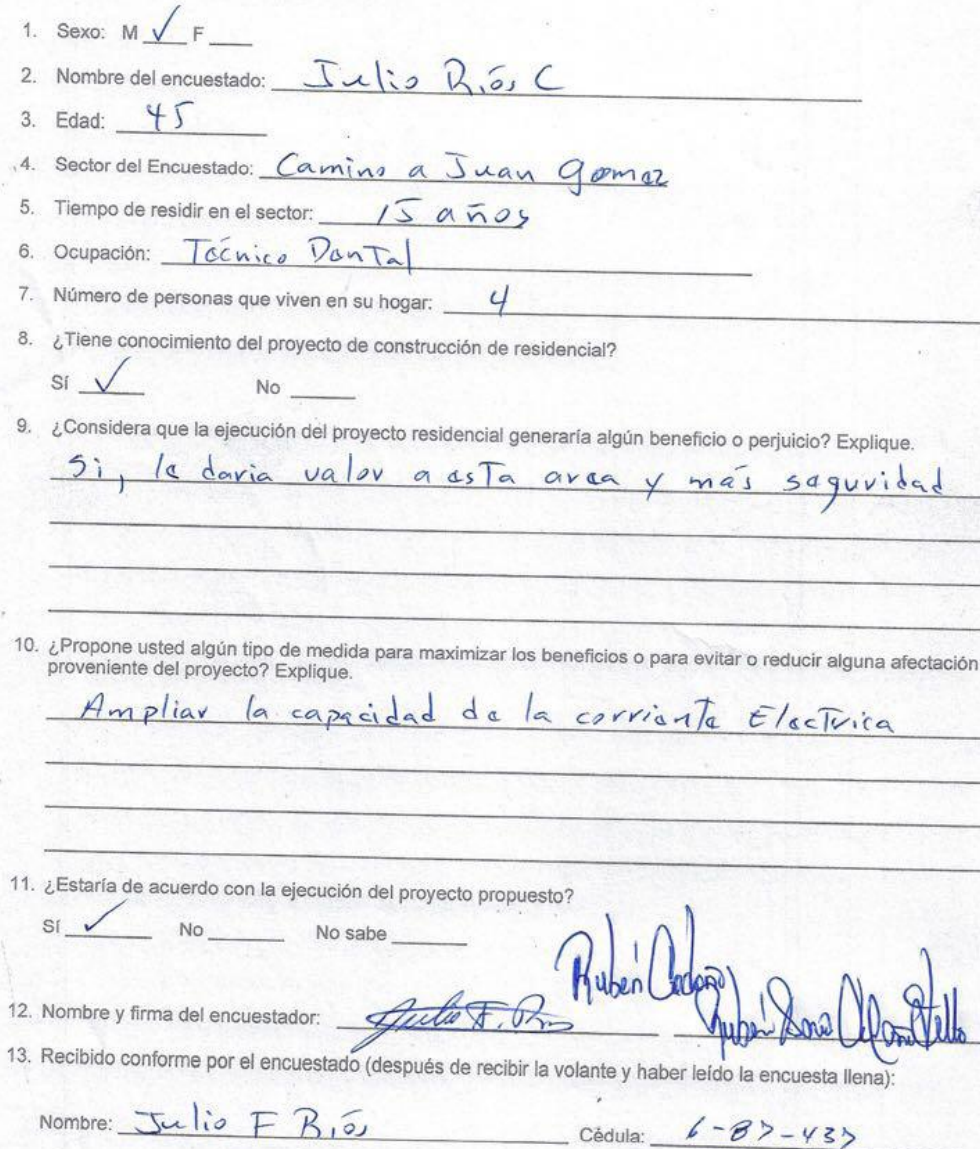 1. Sexo: M ✓ F ___
2. Nombre del encuestado: Julio Ríos C
3. Edad: 45
4. Sector del Encuestado: Camino a Juan Gomez
5. Tiempo de residir en el sector: 15 años
6. Ocupación: Técnico Dental
7. Número de personas que viven en su hogar: 4
8. ¿Tiene conocimiento del proyecto de construcción de residencial?
Sí ✓ No ___
9. ¿Considera que la ejecución del proyecto residencial generaría algún beneficio o perjuicio? Explique.
Si, le daria valor a esta area y más seguridad
10. ¿Propone usted algún tipo de medida para maximizar los beneficios o para evitar o reducir alguna afectación
proveniente del proyecto? Explique.
Ampliar la capacidad de la corriente Electrica
11. ¿Estaría de acuerdo con la ejecución del proyecto propuesto?
Sí ✓ No ___ No sabe ___
Rubén Cedeño
12. Nombre y firma del encuestador: Julio F. Rubén
13. Recibido conforme por el encuestado (después de recibir la volante y haber leído la encuesta llena):
Nombre: Julio F Ríos Cédula: 6-87-437